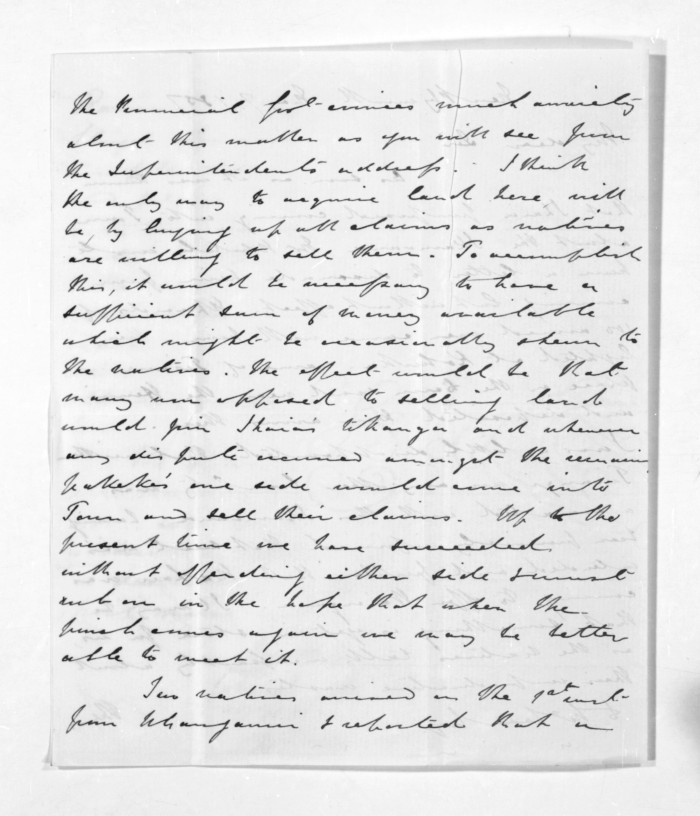 the Provincial Govt evinces much anxiety
about this matter as you will see from
the Superintendent's address. I think
the only way to acquire land here will
be, by buying up all claims as natives
are willing to sell them. To accomplish
this, it would be necessary to have a
sufficient sum of money available
which might be occasionally shewn to
the natives. The effect would be that
many now opposed to selling land
would join Ihaia's tikanga and whenever
any dispute occurred amongst the remaing
pakeke's one side would come into
Town and sell their claims. Up to the
present time we have succeeded
without offending either side & must
rub on in the hope that when the
pinch comes again we may be better
able to meet it.
Two natives arrived on the 1st inst
from Whanganui & reported that a